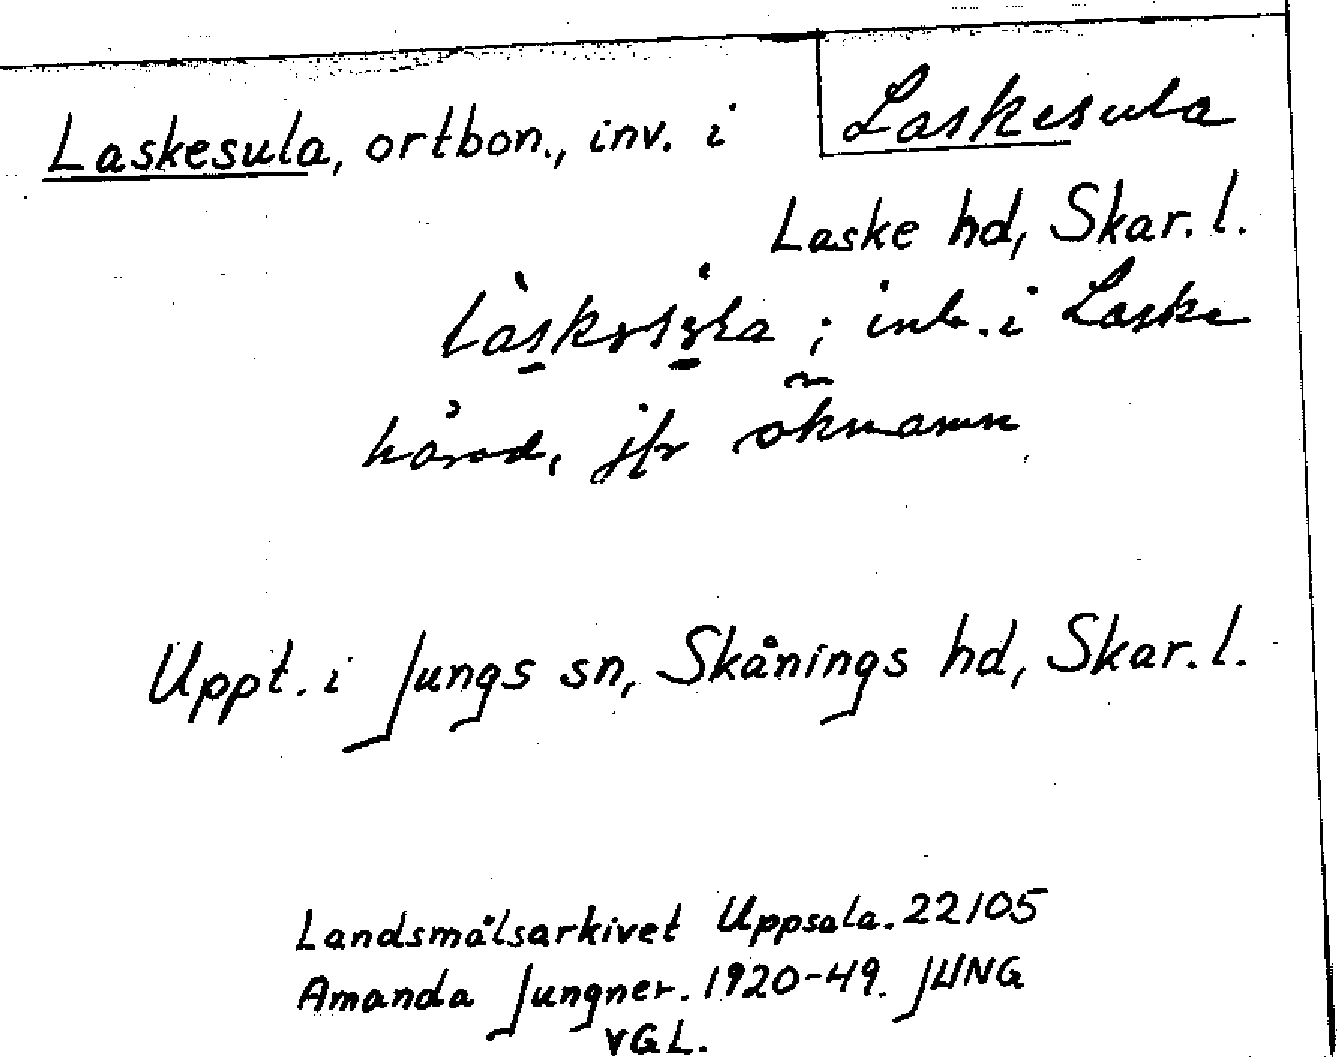 Laskesula
Laskesula, ortbon., inv. i
Laske hd, Skar. l.
; inb. i Laske
härad, jfr öknamn
Uppt. i Jungs sn, Skånings hd, Skar. l.
Landsmålsarkivet Uppsala. 22105
Amanda Jungner. 1920-49. JUNG
VGL.